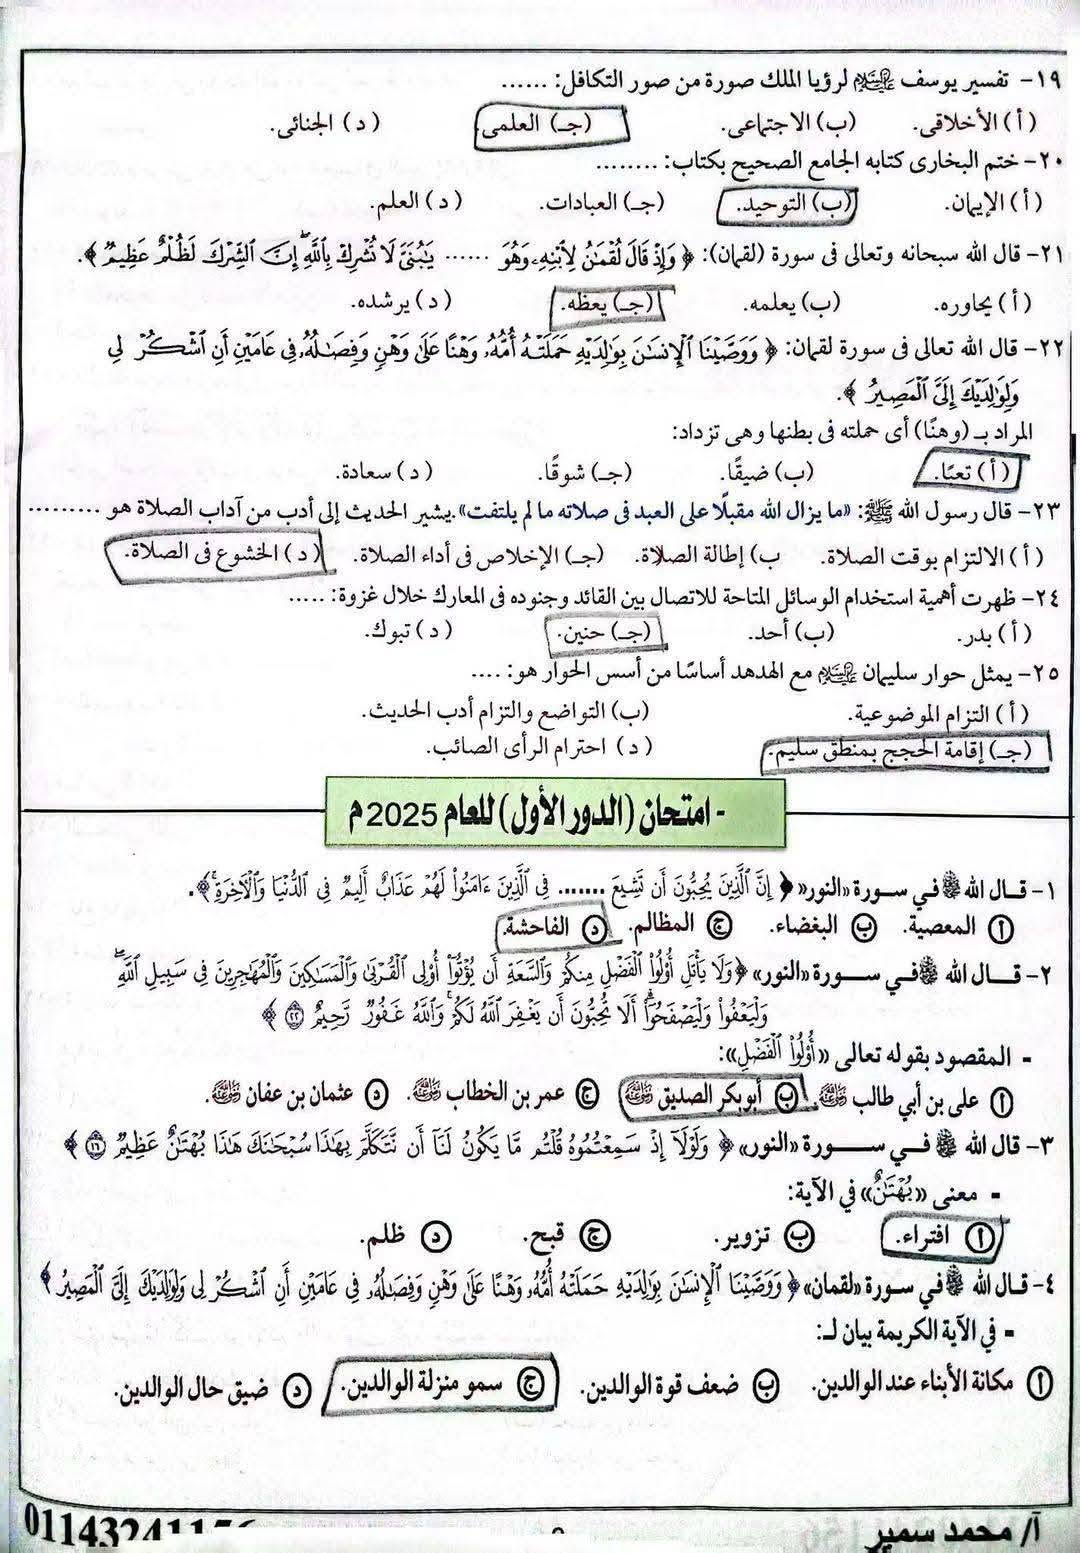 ١٩- تفسير يوسف عليه السلام لرؤيا الملك صورة من صور التكافل: ......
(أ) الأخلاقى. (ب) الاجتماعى. (جـ) العلمى. (د) الجنائى.
٢٠- ختم البخارى كتابه الجامع الصحيح بكتاب: ........
(أ) الإيمان. (ب) التوحيد. (جـ) العبادات. (د) العلم.
٢١- قال الله سبحانه وتعالى فى سورة (لقمان): ﴿ وَإِذْ قَالَ لُقْمَٰنُ لِٱبْنِهِۦ وَهُوَ ...... يَٰبُنَىَّ لَا تُشْرِكْ بِٱللَّهِ ۖ إِنَّ ٱلشِّرْكَ لَظُلْمٌ عَظِيمٌ ﴾.
(أ) يحاوره. (ب) يعلمه. (جـ) يعظه. (د) يرشده.
٢٢- قال الله تعالى فى سورة لقمان: ﴿ وَوَصَّيْنَا ٱلْإِنسَٰنَ بِوَٰلِدَيْهِ حَمَلَتْهُ أُمُّهُۥ وَهْنًا عَلَىٰ وَهْنٍ وَفِصَٰلُهُۥ فِى عَامَيْنِ أَنِ ٱشْكُرْ لِى
وَلِوَٰلِدَيْكَ إِلَىَّ ٱلْمَصِيرُ ﴾.
المراد بـ (وهنًا) أى حملته فى بطنها وهى تزداد:
(أ) تعبًا. (ب) ضيقًا. (جـ) شوقًا. (د) سعادة.
٢٣- قال رسول الله ﷺ: «ما يزال الله مقبلًا على العبد فى صلاته ما لم يلتفت».يشير الحديث إلى أدب من آداب الصلاة هو .........
(أ) الالتزام بوقت الصلاة. ب) إطالة الصلاة. (جـ) الإخلاص فى أداء الصلاة. (د) الخشوع فى الصلاة.
٢٤- ظهرت أهمية استخدام الوسائل المتاحة للاتصال بين القائد وجنوده فى المعارك خلال غزوة: .....
(أ) بدر. (ب) أحد. (جـ) حنين. (د) تبوك.
٢٥- يمثل حوار سليمان عليه السلام مع الهدهد أساسًا من أسس الحوار هو: ....
(أ) التزام الموضوعية. (ب) التواضع والتزام أدب الحديث.
(جـ) إقامة الحجج بمنطق سليم. (د) احترام الرأى الصائب.
- امتحان (الدور الأول) للعام 2025 م
١- قال الله ﷻ في سورة «النور» ﴿ إِنَّ ٱلَّذِينَ يُحِبُّونَ أَن تَشِيعَ ....... فِى ٱلَّذِينَ ءَامَنُوا۟ لَهُمْ عَذَابٌ أَلِيمٌ فِى ٱلدُّنْيَا وَٱلْءَاخِرَةِ ۚ ﴾.
أ المعصية. ب البغضاء. ج المظالم. د الفاحشة.
٢- قال الله ﷻ في سورة «النور» ﴿ وَلَا يَأْتَلِ أُو۟لُوا۟ ٱلْفَضْلِ مِنكُمْ وَٱلسَّعَةِ أَن يُؤْتُوٓا۟ أُو۟لِى ٱلْقُرْبَىٰ وَٱلْمَسَٰكِينَ وَٱلْمُهَٰجِرِينَ فِى سَبِيلِ ٱللَّهِ ۖ
وَلْيَعْفُوا۟ وَلْيَصْفَحُوٓا۟ ۗ أَلَا تُحِبُّونَ أَن يَغْفِرَ ٱللَّهُ لَكُمْ ۗ وَٱللَّهُ غَفُورٌ رَّحِيمٌ ٢٢ ﴾
- المقصود بقوله تعالى «أُو۟لُوا۟ ٱلْفَضْلِ»:
أ على بن أبي طالب رضي الله عنه. ب أبو بكر الصديق رضي الله عنه ج عمر بن الخطاب رضي الله عنه. د عثمان بن عفان رضي الله عنه.
٣- قال الله ﷻ في سورة «النور» ﴿ وَلَوْلَآ إِذْ سَمِعْتُمُوهُ قُلْتُم مَّا يَكُونُ لَنَآ أَن نَّتَكَلَّمَ بِهَٰذَا سُبْحَٰنَكَ هَٰذَا بُهْتَٰنٌ عَظِيمٌ ١٦ ﴾
- معنى «بُهْتَٰنٌ» في الآية:
أ افتراء. ب تزوير. ج قبح. د ظلم.
٤- قال الله ﷻ في سورة «لقمان» ﴿ وَوَصَّيْنَا ٱلْإِنسَٰنَ بِوَٰلِدَيْهِ حَمَلَتْهُ أُمُّهُۥ وَهْنًا عَلَىٰ وَهْنٍ وَفِصَٰلُهُۥ فِى عَامَيْنِ أَنِ ٱشْكُرْ لِى وَلِوَٰلِدَيْكَ إِلَىَّ ٱلْمَصِيرُ ﴾
- في الآية الكريمة بيان لـ:
أ مكانة الأبناء عند الوالدين. ب ضعف قوة الوالدين. ج سمو منزلة الوالدين. د ضيق حال الوالدين.
أ/ محمد سمير